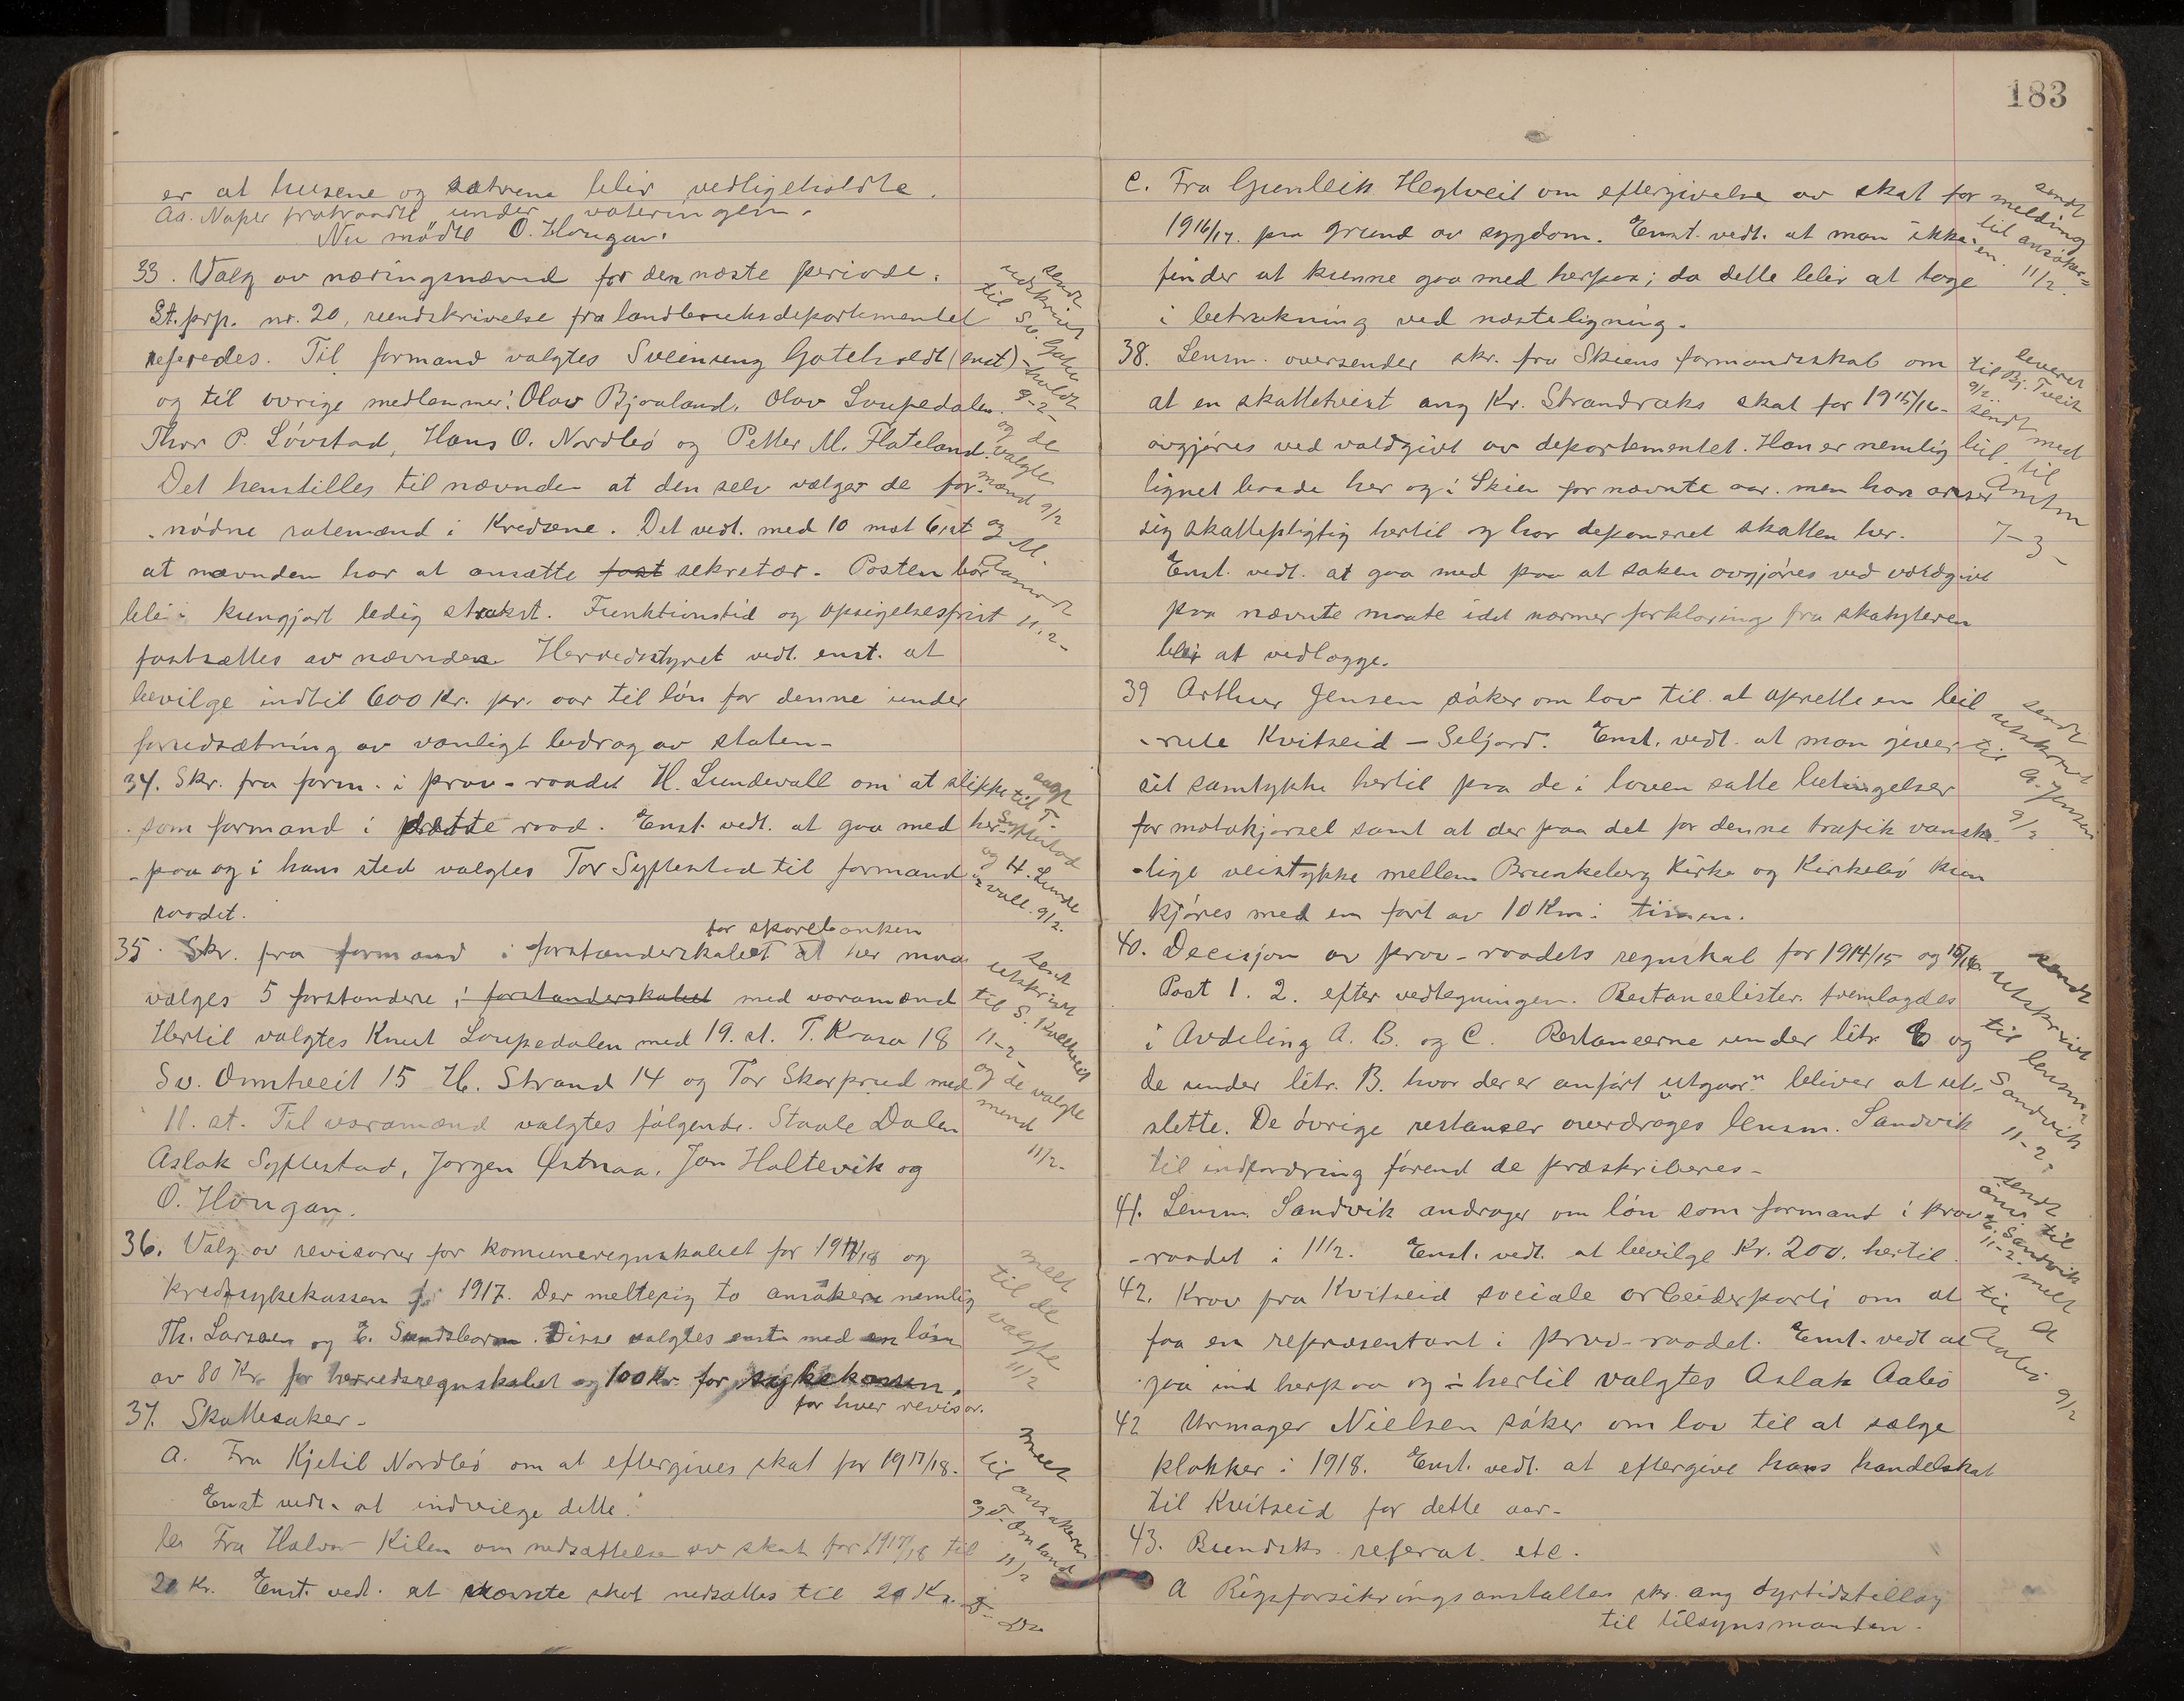 er at husene og sætrene bliv vedligeholdte.
Aa. Naper fratraadte under voteringen.
Nu mødte O. Hougan.
33. Valg av næringsnævnd for den næste periode.
St. prp. nr. 20, rundskrivelse fra landbruksdepartementet
referedes. Til formand valgtes Sveinung Gateholdt (enst)
og til øvrige medlemmer: Olav Bjaaland, Olav Loupedalen
Thor P. Løvstad, Hans O. Nordbø og Petter M. Flateland.
Det henstilles til nævnden at den selv vælger de for-
-nødne rotemænd i Kredsene. Det vedt. med 10 mot 6 st
at nævnden har at ansætte fast sekretær. Posten bør
blir kungjort ledig strakst. Funktionstid og opsigelsesfrist
fastsættes av nævnden. Herredsstyret vedt. enst. at
bevilge indtil 600 Kr. pr. aar til løn for denne under
forudsætning av vanligt bidrag av staten-
sendt
utskrivt
til
Sv. Gate
-holdt
9-2-
og de
valgte
mænd 9/2
og M.
Aamodt
11.2-
34. Skr. fra form. i prov-raadet H. Lundevall om at slippe
som formand i dette raad. Enst. vedt. at gaa med her-
-paa og i hans sted valgtes Tor Syftestad til formand
raadet.
sagt
til T.
Syftestad
og H. Lunde
-vall. 9/2.
for sparebanken
35. Skr. fra formand i forstanderskabet at her maa
vælges 5 forstandere i forstanderskabet med varamænd
Hertil valgtes Knut Loupedalen med 19. st. T. Kraasa 18
Sv. Omtveit 15 H. Strand 14 og Tor Skarprud med
11. st. Til varamænd valgtes følgende. Staale Dalen
Aslak Syftestad, Jørgen Østnaa, Jon Haltevik og
O. Hougan.
sent
utskrivt
til S.
11-2-
og de valgte
mend
11/2-
36. Valg av revisorer for komuneregnskabet for 1917/18 og
kredssykekassen for 1917. Der meltesig to ansøkere nemlig
Th. Larsen og E. Sundsbarm. Disse valgtes enst. med en løn
av 80 Kr. for herredsregnskabet og 100 Kr. for sykekassen,
for hver revisor.
melt
til de
valgte
11/2
37. Skattesaker-
a. Fra Kjetil Nordbø om at eftergives skat for 1917/18.
Enst vedt. at indvilge dette.
b. Fra Halvor Kilen om nedsættelse av skat for 1917/18 til
20 Kr. Enst. vedt. at nævnte skat nedsættes til 20 Kr.
melt
til
ansøkeren
og T. Omland
11/2
183
C. Fra Gunleik Hegtveit om eftergivelse av skat for
1916/17. paa grund av sygdom. Enst. vedt. at man ikke
finder at kunne gaa med herpaa; da dette bliv at tage
i betrakning ved næsteligning.
sendt
melding
til ansøker=
en. 11/2.
38. Lensm. oversender skr. fra Skiens formandsskab om
at en skattetvist ang Kr. Strandraks skat for 1915/16-
avgjøres ved voldgivt av departementet. Han er nemlig
lignet baade her og i Skien for nævnte aar. men han anser
sig skattepligtig hertil og har deponeret skatten her.
Enst. vedt. at gaa med paa at saken avgjøres ved voldgivt
paa nævnte maate idet nærmer forklaring fra skatyteren
blir at vedlægge.
leveret
til Bj. Tveit
9/2.
sendt med
bil. til
Amtm
7-3-
39 Arthur Jensen søker om lov til at oprette en bil
-rute Kvitseid - Seljord. Enst. vedt. at man giver
sit samtykke hertil paa de i loven satte betingelser
for motokjørsel samt at der paa det for denne trafik vanske-
-lige veistykke mellem Brunkeberg Kirke og Kirkebø kun
kjøres med en fart av 10 Km i timen.
sendt
utskrivt
til
A. Jensen
9/2
40. Decisjon av prov-raadets regnskab for 1914/15 og 15/16.
Post 1. 2. efter vedtegningen. Restancelister fremlagdes
i Avdeling A. B. og C. Restancerne under litr. C og
de under litr. B. hvor der er anført „utgaar" bliver at ut-
slette. De øvrige restanser overdrages lensm. Sandvik
til indfordring førend de præskriberes-
sendt
utskrivt
til lensm.
Sandvik
11-2.
41. Lensm. Sandvik andrager om løn som formand i prov
-raadet i 1 1/2. Enst. vedt. at bevilge Kr. 200. hertil.
sendt
anv. til
E. Sandvik
11-2.
42. Krav fra Kvitseid sociale arbeiderparti om at
faa en repræsentant i prov-raadet. Enst. vedt at
gaa ind herpaa og hertil valgtes Aslak Aabø
melt
til A
Aabø
9/2
42 Urmager Nielsen søker om lov til at sælge
klokker i 1918. Enst. vedt. at eftergive hans handelskat
til Kvitseid for dette aar-
43. Rundsk. referat. etc.
a Rigsforsikringsanstalten skr. ang dyrtidstillæg
til tilsynsmanden.